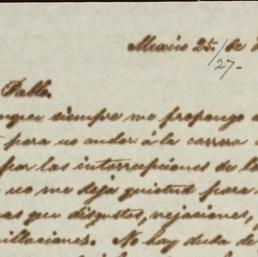 Mexico 25./ de
27-
Pablo.
siempre me propongo
para no andar á la carrera
por las interrupciones de lo
no me deja quietud para
que disgustos, vejaciones,
millaciones. No hay duda de